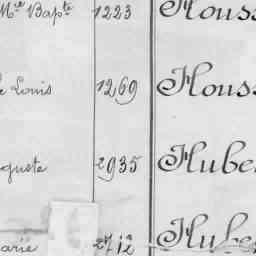 Mce Bapte 1223 Houss
e Louis 1269 Houss
guste 2935 Huber
arie 2712 Hube